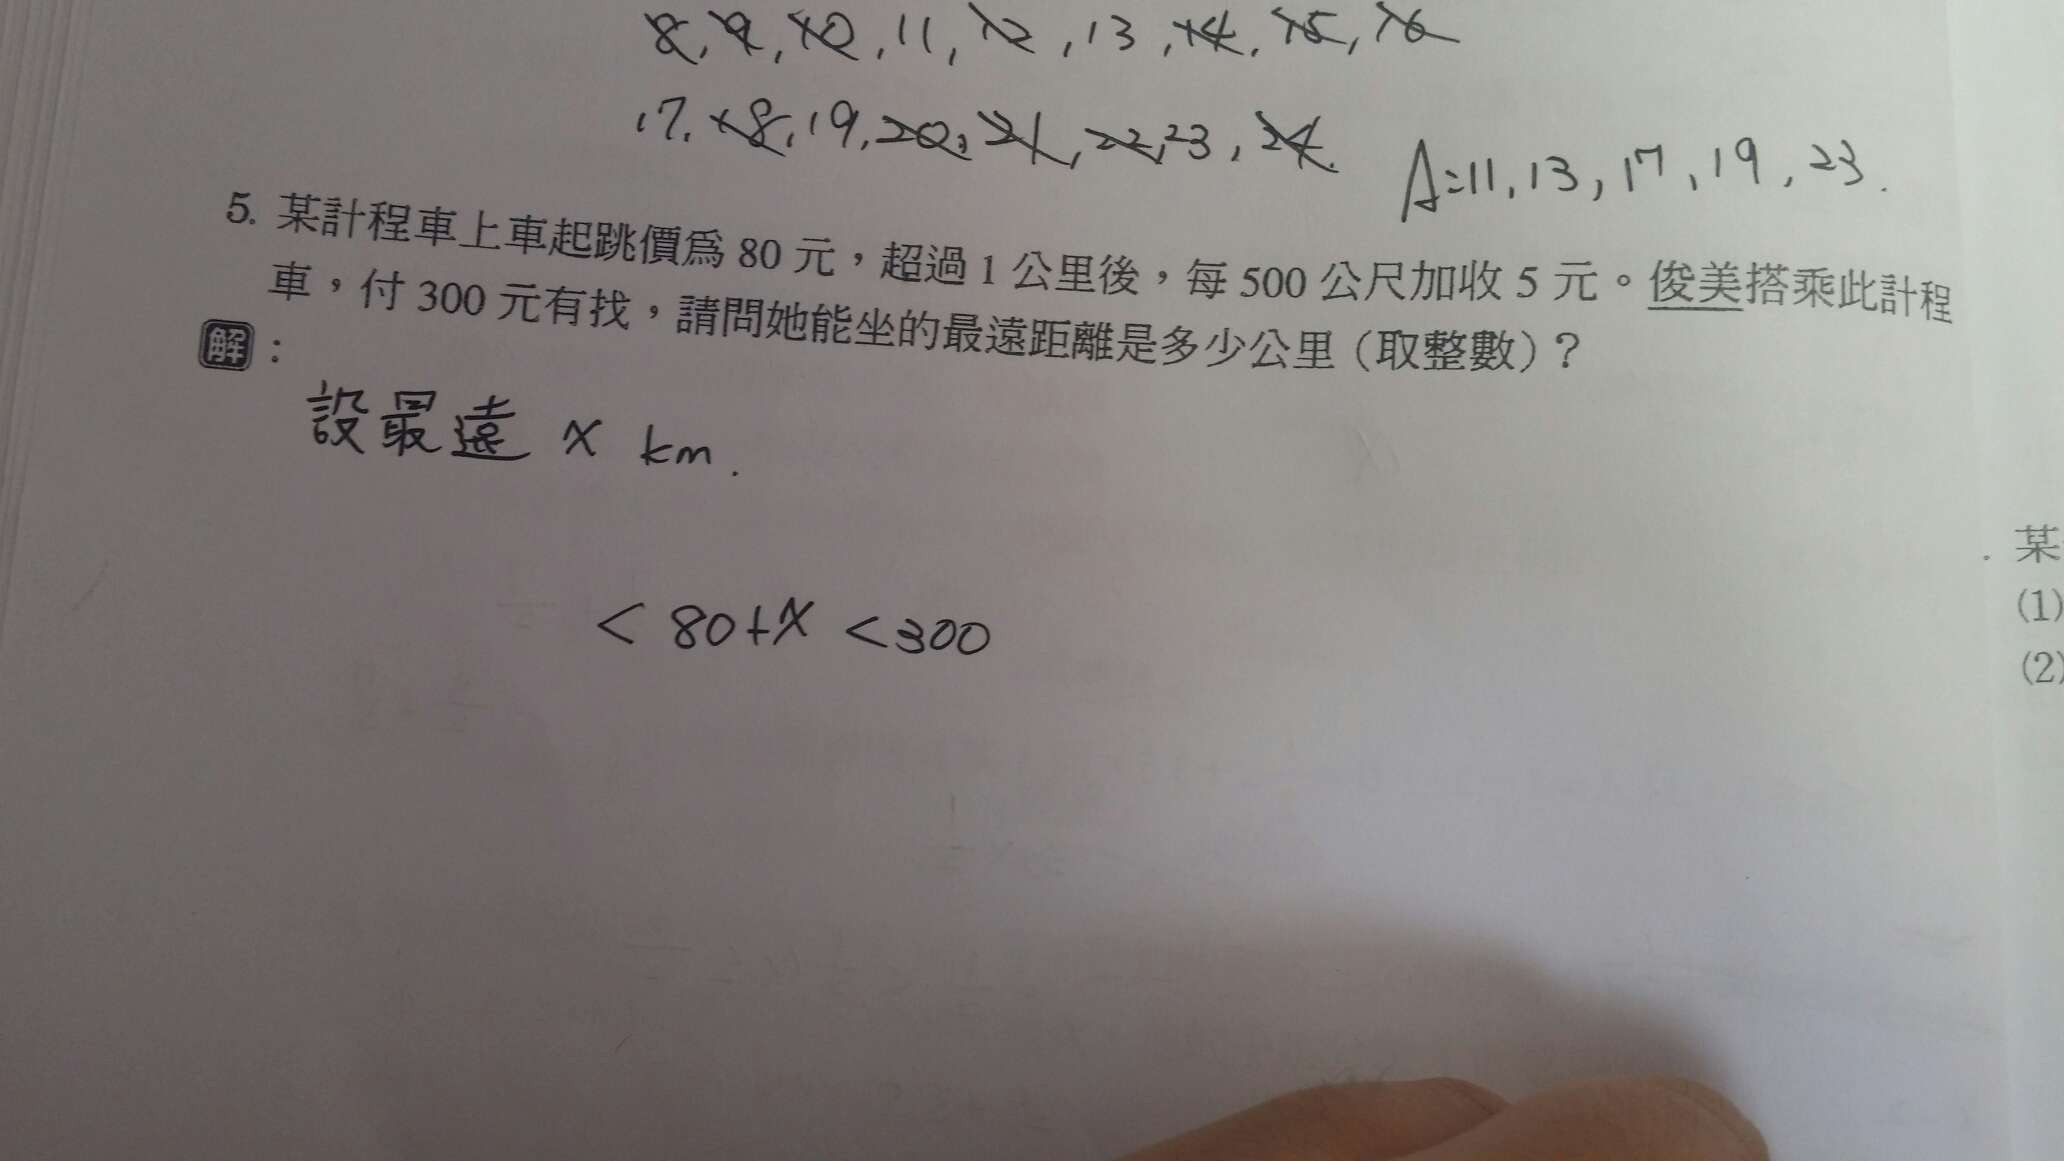 8, 9, 10, 11, 12, 13, 14, 15, 16
17, 18, 19, 20, 21, 22, 23, 24. A=11, 13, 17, 19, 23.
5. 某計程車上車起跳價為 80 元，超過 1 公里後，每 500 公尺加收 5 元。俊美搭乘此計程
車，付 300 元有找，請問她能坐的最遠距離是多少公里（取整數）？
解：
設最遠 x km.
< 80+x < 300
某
(1)
(2)